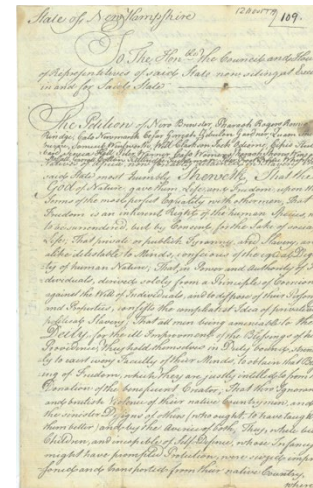 State of New Hampshire
109.
To The Hon.ble The Council and House
of Representatives of said State now siting at Exeter
in and for Said State
The Petition of Nero Brewster, Pharaoh Rogers, Romeo
Rindge, Cato Newmarch, Cesar Gerrish, Zebulon Gardner, Quam
Samuel Wentworth, Will Clarkson, Jack Odiorne, Cipio
Seneca Hall, Peter Warner, Cato Warner, Pharaoh
said State most humbly Sheweth, That the
God of Nature, gave them, Life, and Freedom, upon the
Terms of the most perfect Equality with other men; That
Freedom is an inherent Right of the human Species, not
to be surrendered, but by Consent, for the Sake of social
Life; That private or publick Tyranny, and Slavery, are
alike detestable to Minds, conscious of the equal Dignity
of human Nature; That in Power and Authority of in-
dividuals, derived solely from a Principle of Coercion,
against the Will of Individuals, and to dispose of their Persons
and Properties, consists the compleatest Idea of private and
publick Slavery; That all men being ameniable to the
Deity, for the ill Improvement of the Blessings of his
Providence, They hold themselves in Duty bound, strenuous-
ly to exert every Faculty of their Minds, to obtain that Bless-
ing of Freedom, which they are justly intitled to from the
Donation of the beneficent Creator; That thro' Ignorance
and brutish Violence of their native Countrymen, and by
the sinister Designs of others (who ought to have taught
them better) and by the Avarice of both, They, while but
Children, and incapable of Self-Defence, whose Infancy
might have prompted Protection, were seized, impri-
soned, and transported from their native Country,
where